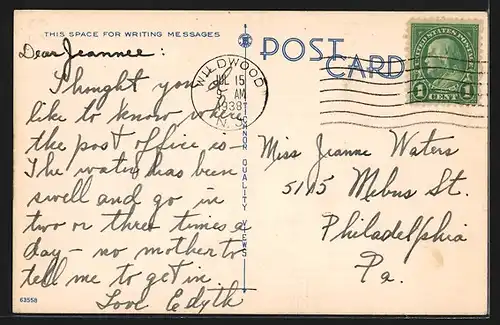 THIS SPACE FOR WRITING MESSAGES
Dear Jeannee:
I thought you
like to know where
the post office is -
The water has been
swell and go in
two or three times a
day - no mother to
tell me to get in.
Love Edyth
63558
TICHNOR QUALITY VIEWS
POST
CARD
WILDWOOD
JUL 15
9 AM
1938
N. J.
UNITED STATES POSTAGE
1 CENT 1
Miss Jeanne Waters
5115 Mebus St.
Philadelphia
Pa.